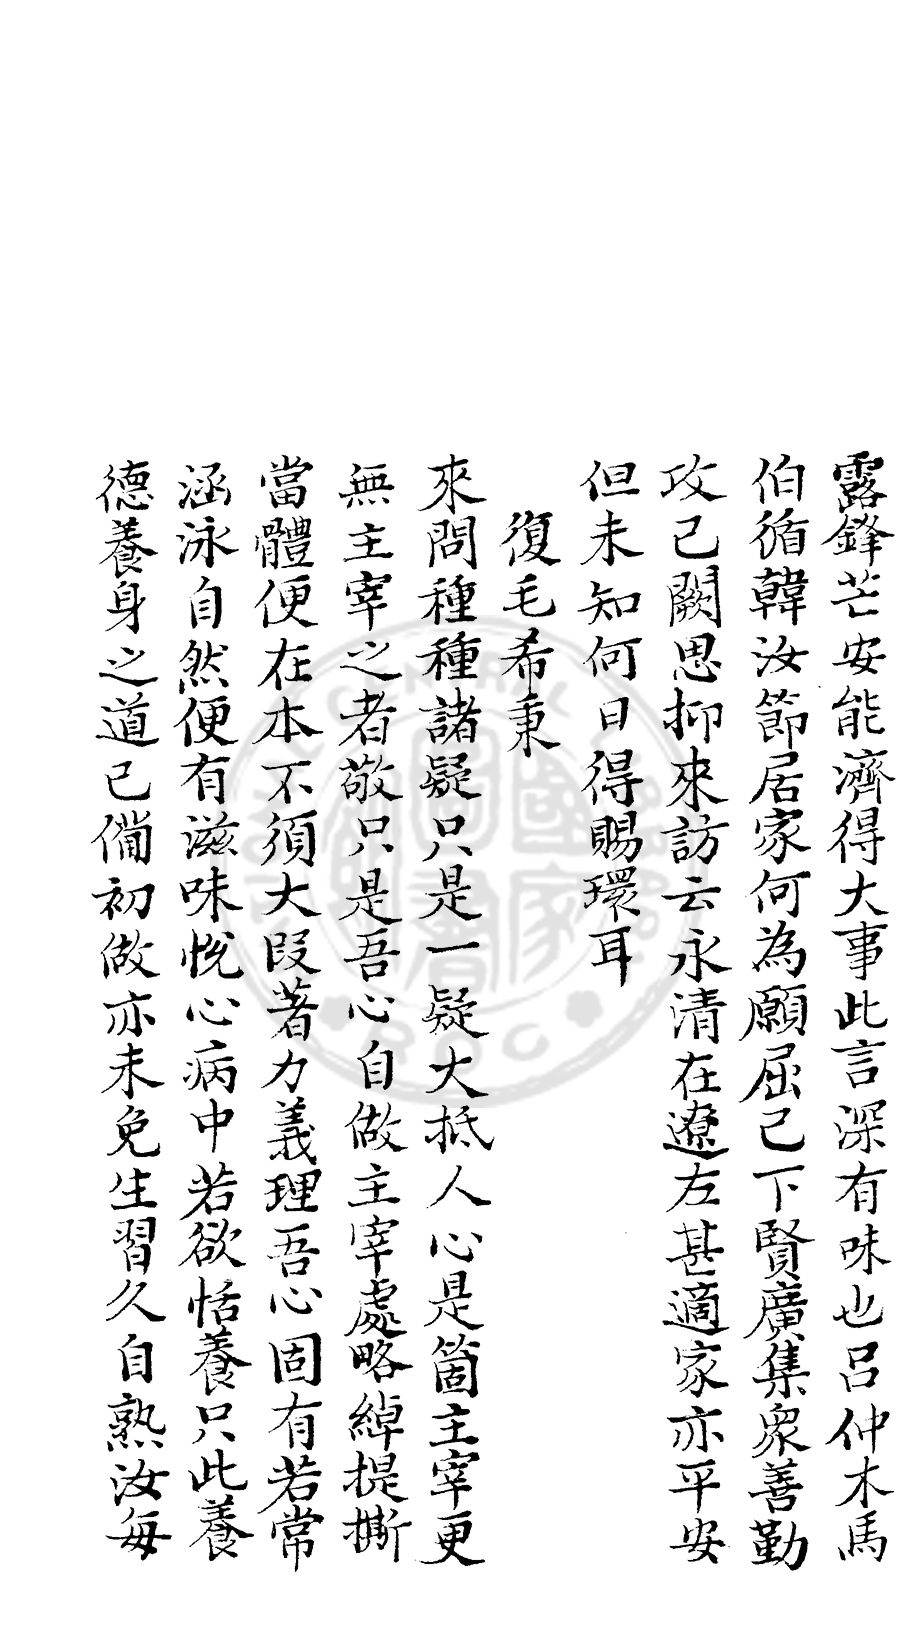 露鋒芒安能濟得大事此言深有味也呂仲木馬
伯循韓汝節居家何為願屈己下賢廣集衆善勤
攻己闕思抑來訪云永清在遼左甚適家亦平安
但未知何日得賜環耳
復毛希秉
來問種種諸疑只是一疑大抵人心是箇主宰更
無主宰之者敬只是吾心自做主宰處略綽提撕
當體便在本不須大段著力義理吾心固有若常
涵泳自然便有滋味悅心病中若欲恬養只此養
德養身之道已備初做亦未免生習久自熟汝每